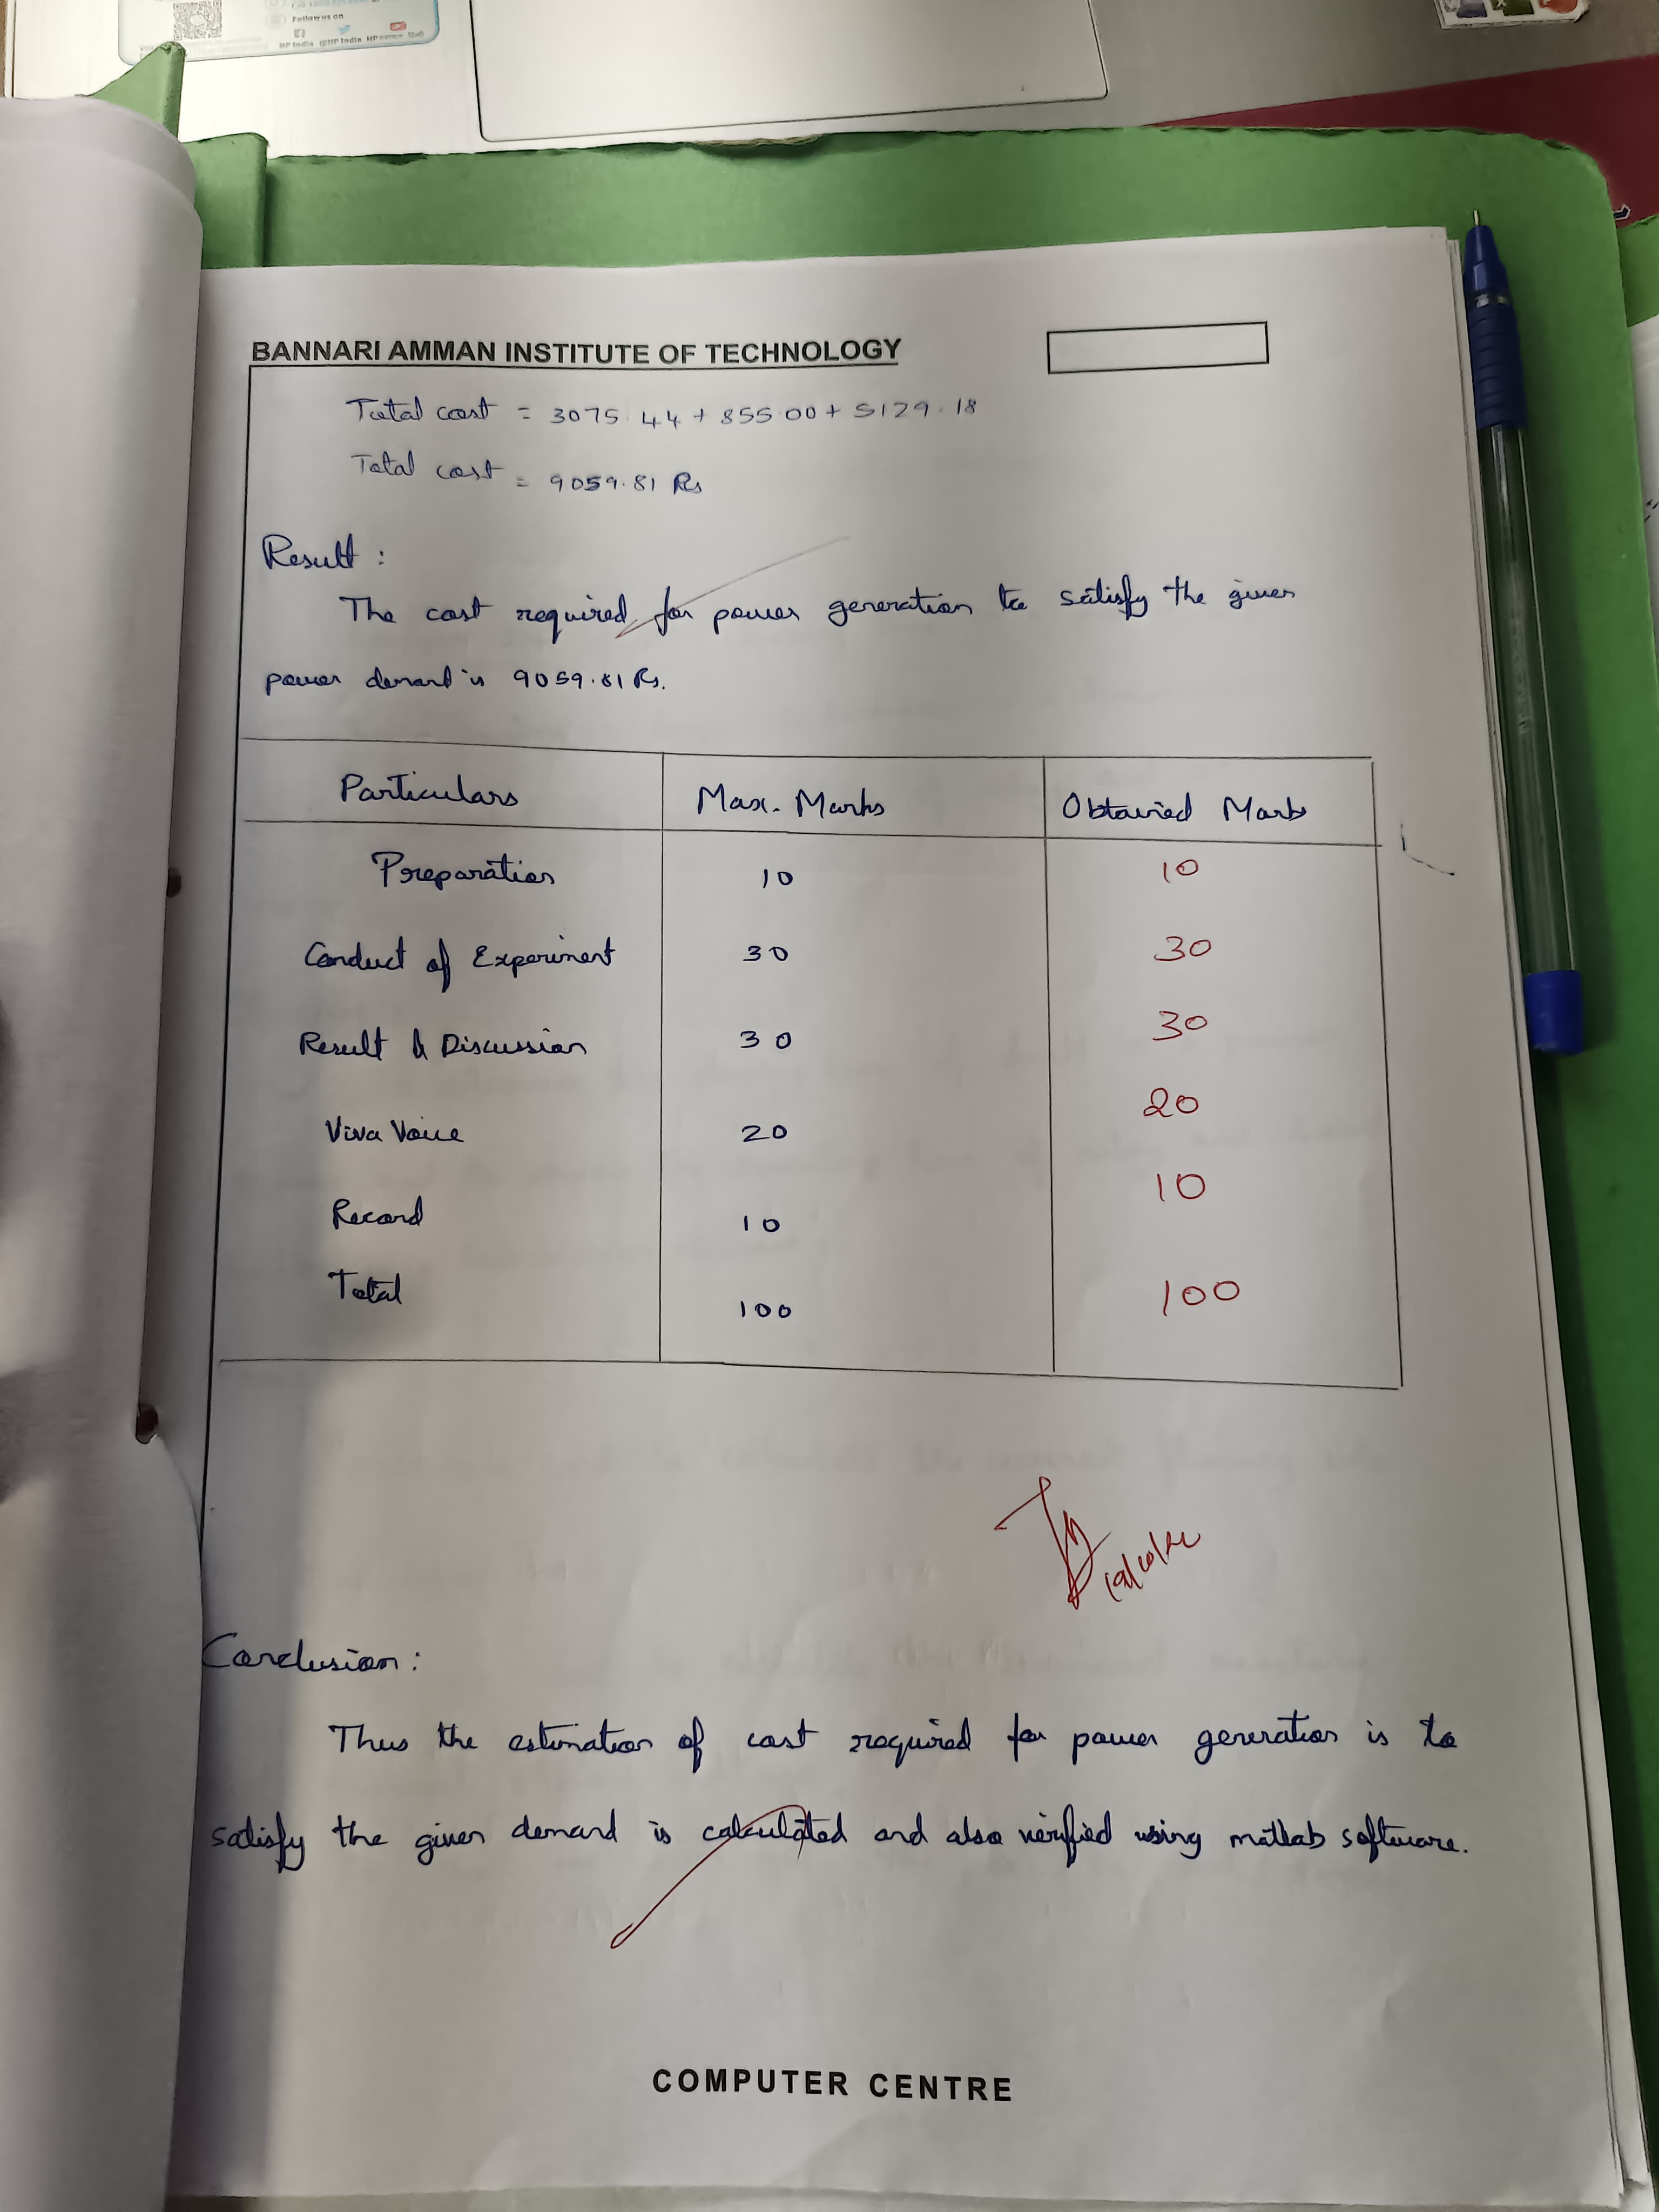 Follow us on
HP India @HP India HP
BANNARI AMMAN INSTITUTE OF TECHNOLOGY
Total cost = 3075.44 + 855.00 + 5129.18
Total cost = 9059.81 Rs
Result :
The cost required for power generation to satisfy the given
power demand is 9059.81 Rs.
Particulars Max. Marks Obtained Marks
Preparation 10 10
Conduct of Experiment 30 30
Result & Discussion 30 30
Viva Voice 20 20
Record 10 10
Total 100 100
Conclusion :
Thus the estimation of cost required for power generation is to
satisfy the given demand is calculated and also verified using matlab software.
COMPUTER CENTRE